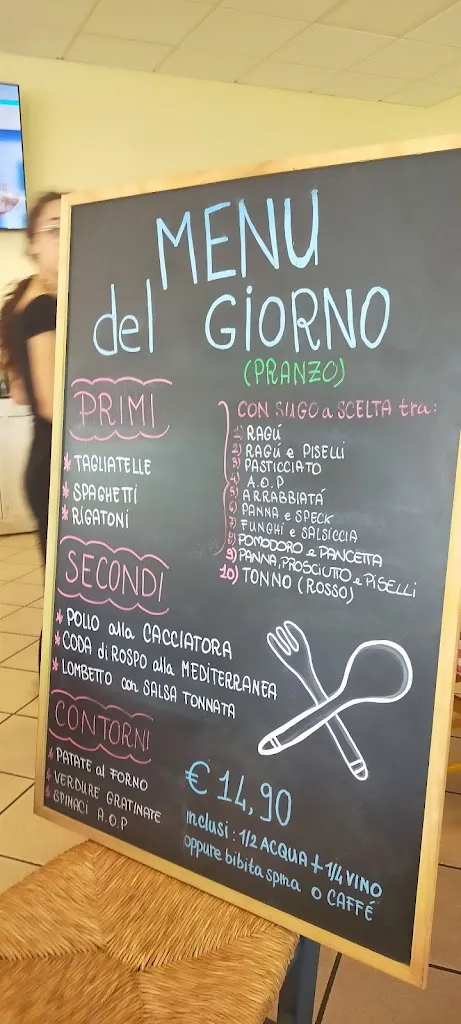 MENU
del GiORNO
(PRANZO)
PRIMI
* TAGLIATELLE
* SPAGHETTI
* RIGATONI
CON SUGO a SCELTA tra:
1) RAGÚ
2) RAGÚ e PISELLI
3) PASTICCIATO
4) A.O.P
5) ARRABBIATÁ
6) PANNA e SPECK
7) FUNGHI e SALSICCIA
8) POMODORO e PANCETTA
9) PANNA, PROSCIUTTO e PISELLI
10) TONNO (ROSSO)
SECONDI
* POLLO alla CACCIATORA
* CODA di ROSPO alla MEDITERRANEA
* LOMBETTO con SALSA TONNATA
CONTORNI
* PATATE al FORNO
* VERDURE GRATINATE
* SPINACI A.O.P
€ 14,90
inclusi: 1/2 ACQUA + 1/4 VINO
oppure bibita spina o CAFFÉ